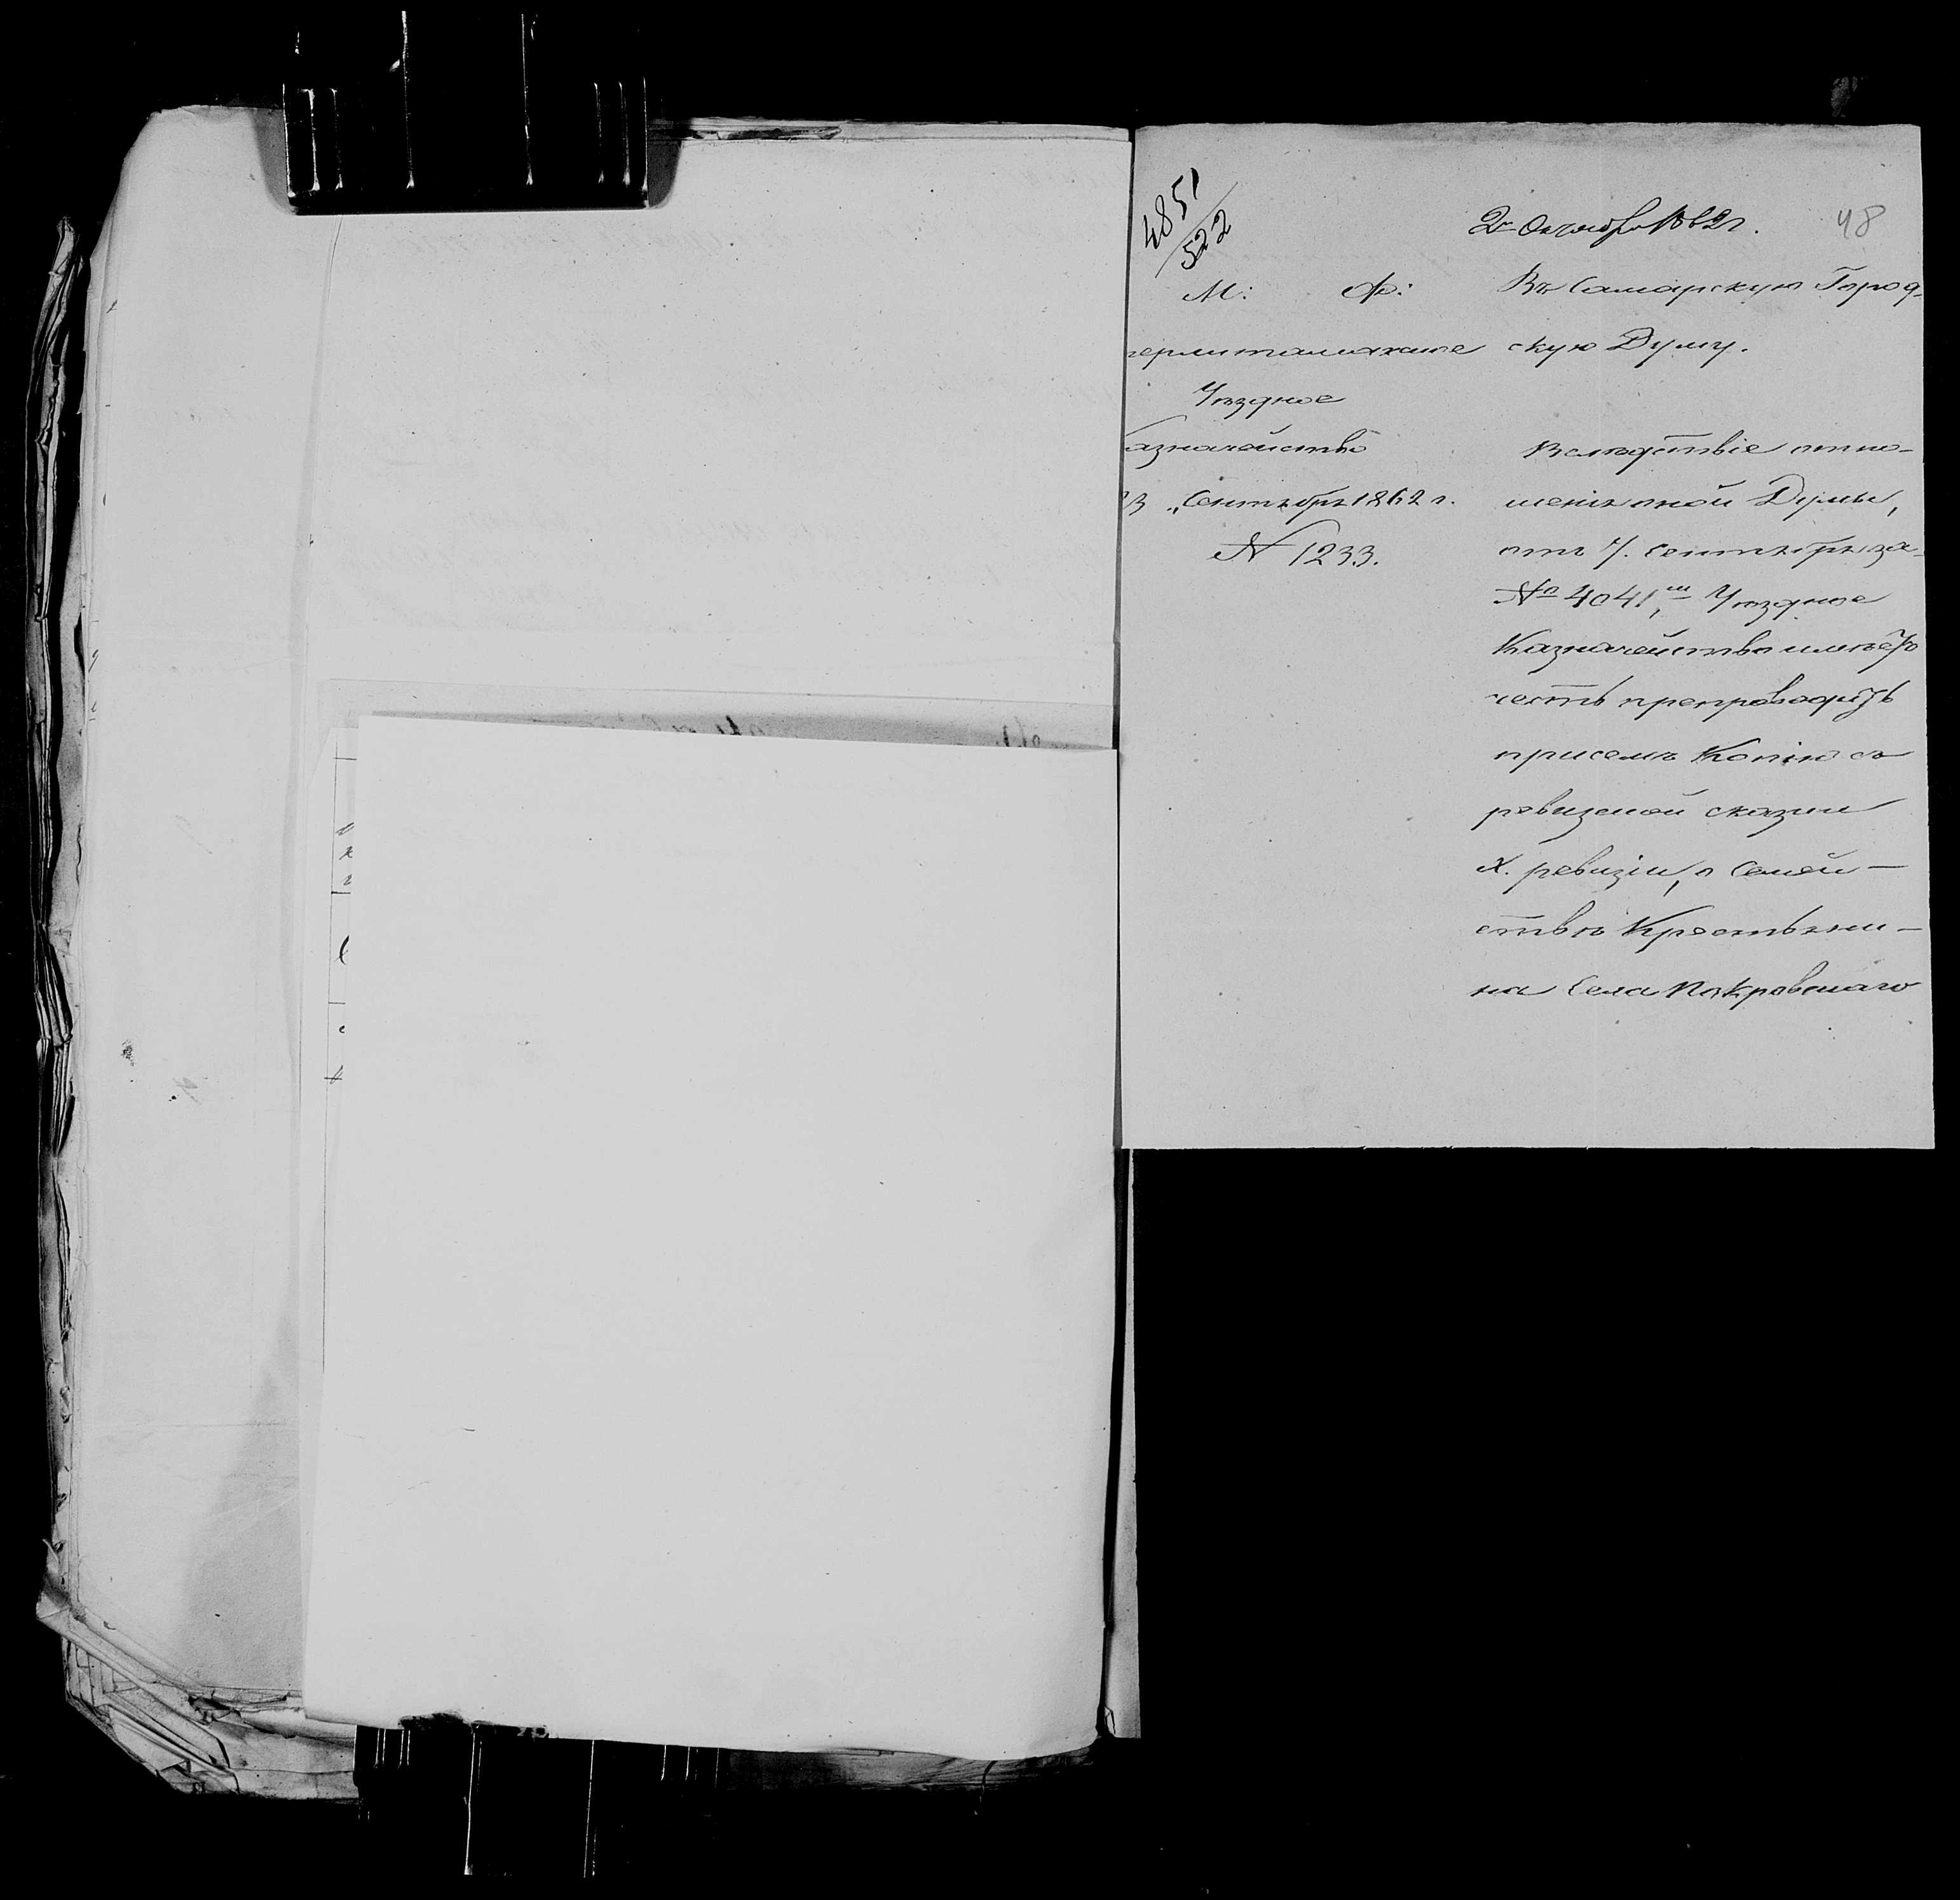 4851/522
2 Октября 1862 г.
48
М: Ф:
терлитамакское
Уѣздное
азначейство
„ Сентября 1862 г.
№ 1233.
Въ Самарскую Город-
скую Думу.
Вслѣдствіе отно-
шенія оной Думы,
отъ 7. Сентября за
№ 4041, Уѣздное
Казначейство имѣетъ
честь препроводить
присемъ Копію съ
ревизской сказки
X. ревизіи, о Семей-
ствѣ Крестьяни-
на Села Покровскаго